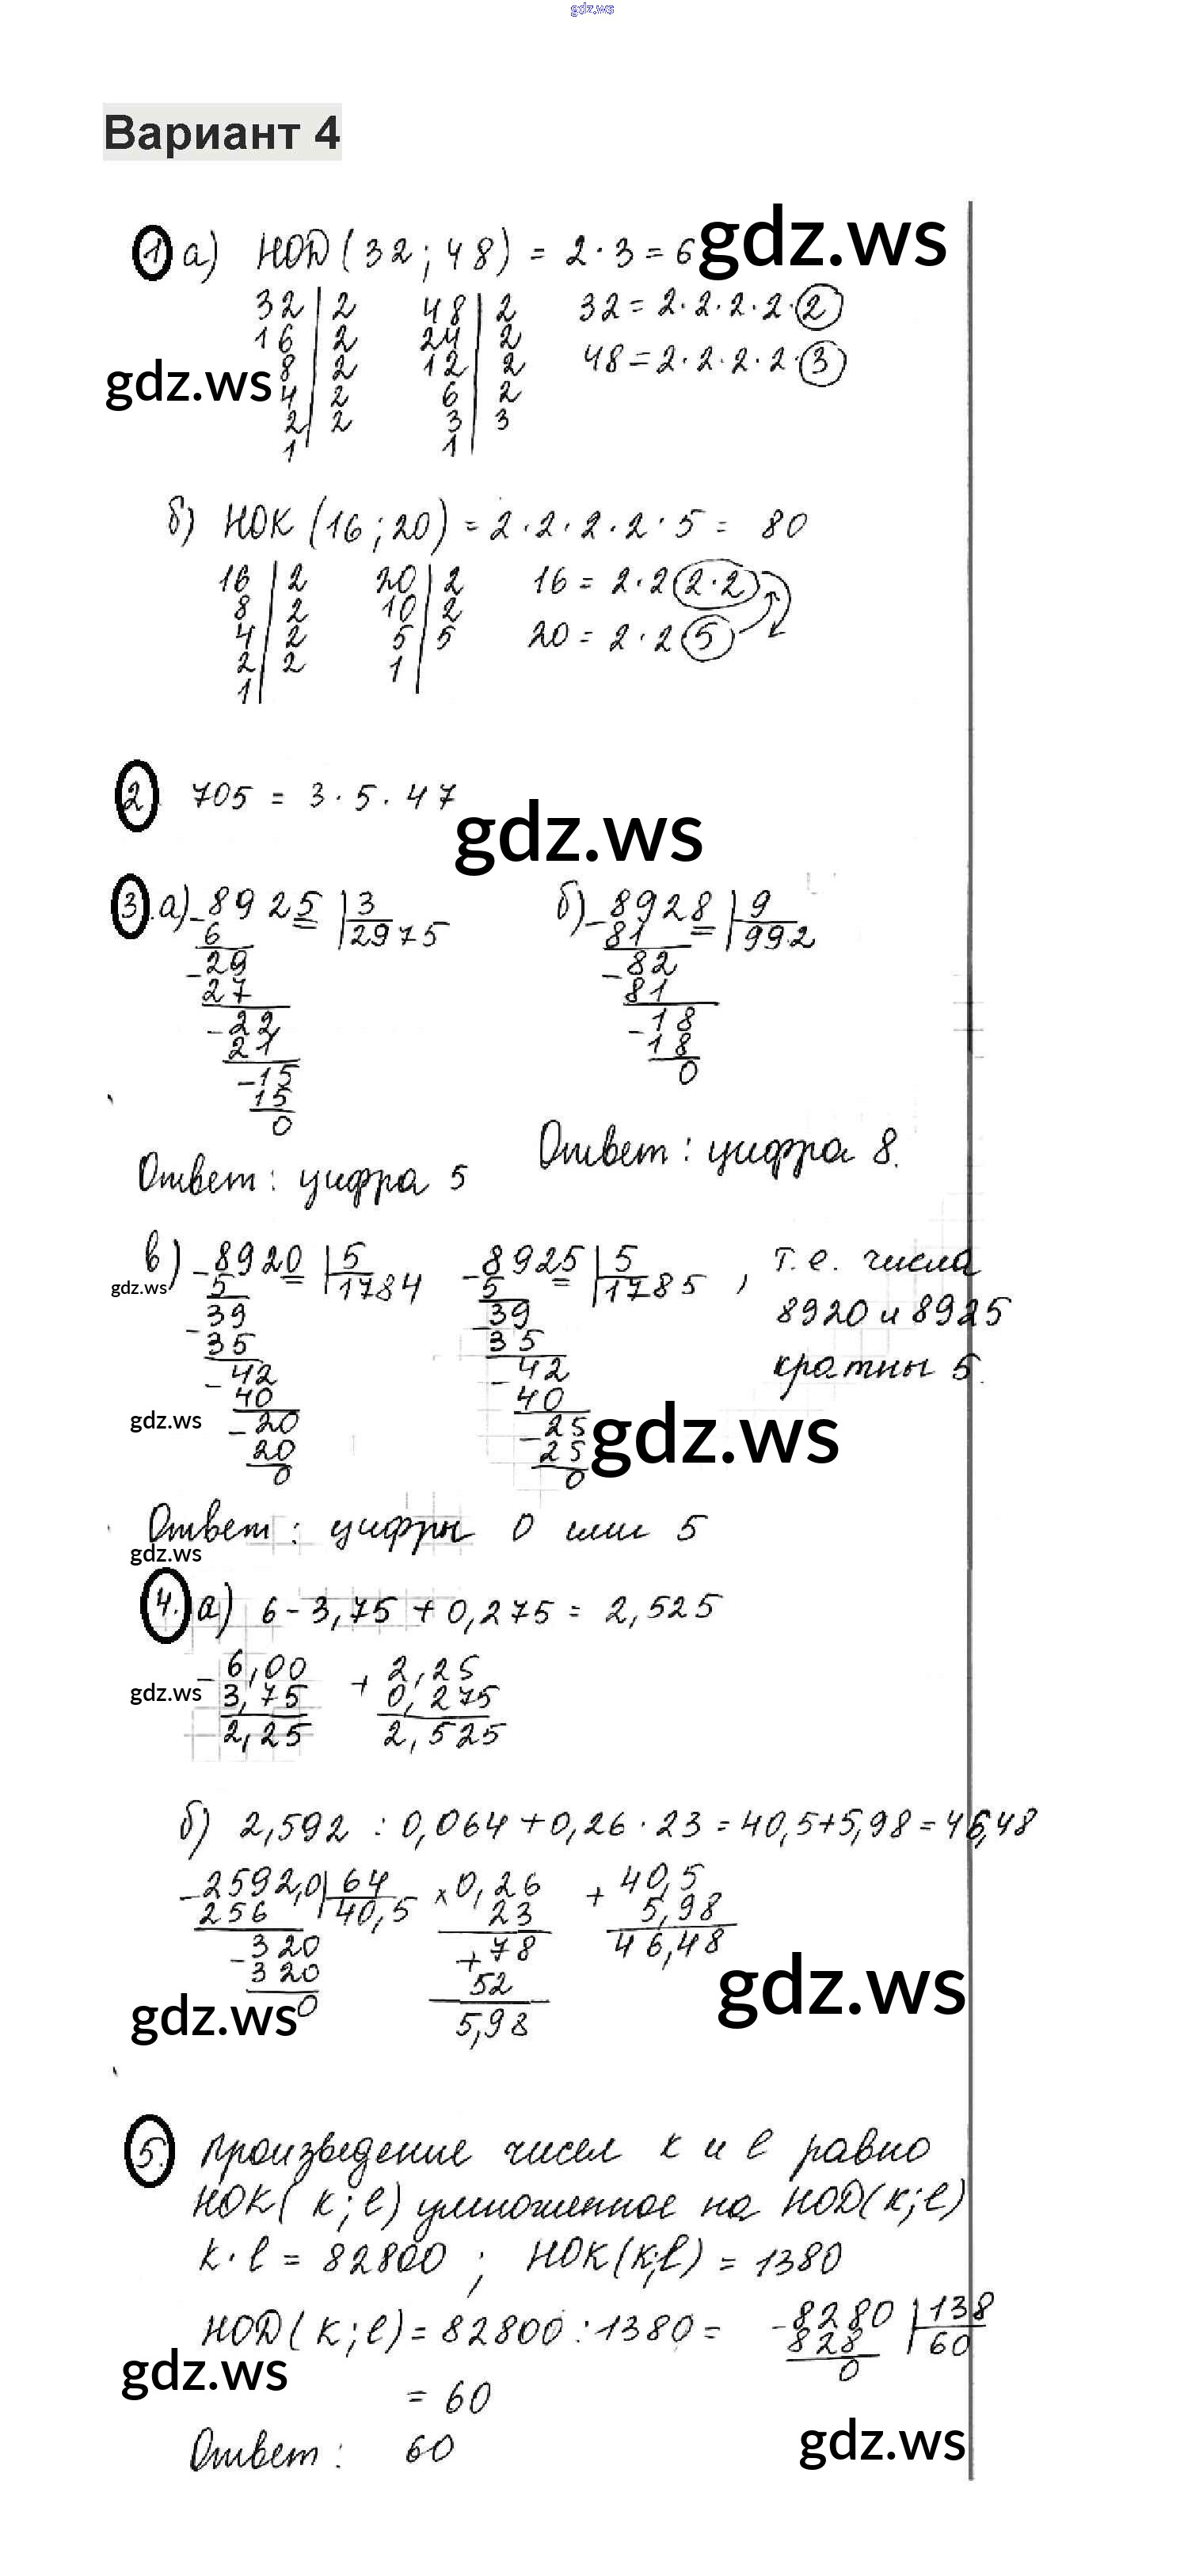 gdz.ws
Вариант 4
1 а) НОД(32; 48) = 2·3 = 6 gdz.ws
32 | 2   48 | 2   32 = 2·2·2·2·2
16 | 2   24 | 2
8 | 2   12 | 2   48 = 2·2·2·2·3
gdz.ws
4 | 2   6 | 2
2 | 2   3 | 3
1 |   1 |
б) НОК (16; 20) = 2·2·2·2·5 = 80
16 | 2   20 | 2   16 = 2·2 2·2
8 | 2   10 | 2
4 | 2   5 | 5   20 = 2·2 5
2 | 2   1 |
1 |
2 705 = 3·5·47
gdz.ws
3. а) -8925 | 3   б) -8928 | 9
6 | 2975   81 | 992
-29   -82
27   81
-22   -18
21   18
-15   0
15
0
Ответ: цифра 5   Ответ: цифра 8.
в) -8920 | 5   -8925 | 5 , т.е. числа
gdz.ws 5 | 1784   5 | 1785   8920 и 8925
-39   -39
35   35   кратны 5.
-42   -42
40   40
gdz.ws -20   -25 gdz.ws
20   25
0   0
Ответ: цифры 0 или 5
gdz.ws
4. а) 6 - 3,75 + 0,275 = 2,525
-6,00   + 2,25
gdz.ws 3,75   0,275
2,25   2,525
б) 2,592 : 0,064 + 0,26 · 23 = 40,5+5,98 = 46,48
-2592,0 | 64   × 0,26   + 40,5
256 | 40,5   23   5,98
-320   +78   46,48
320   52   gdz.ws
gdz.ws 0   5,98
5. Произведение чисел k и l равно
НОК(k; l) умноженное на НОД(k; l)
k·l = 82800 ; НОК(k; l) = 1380
НОД(k; l) = 82800 : 1380 =   -8280 | 138
828 | 60
gdz.ws   0
= 60
Ответ: 60   gdz.ws